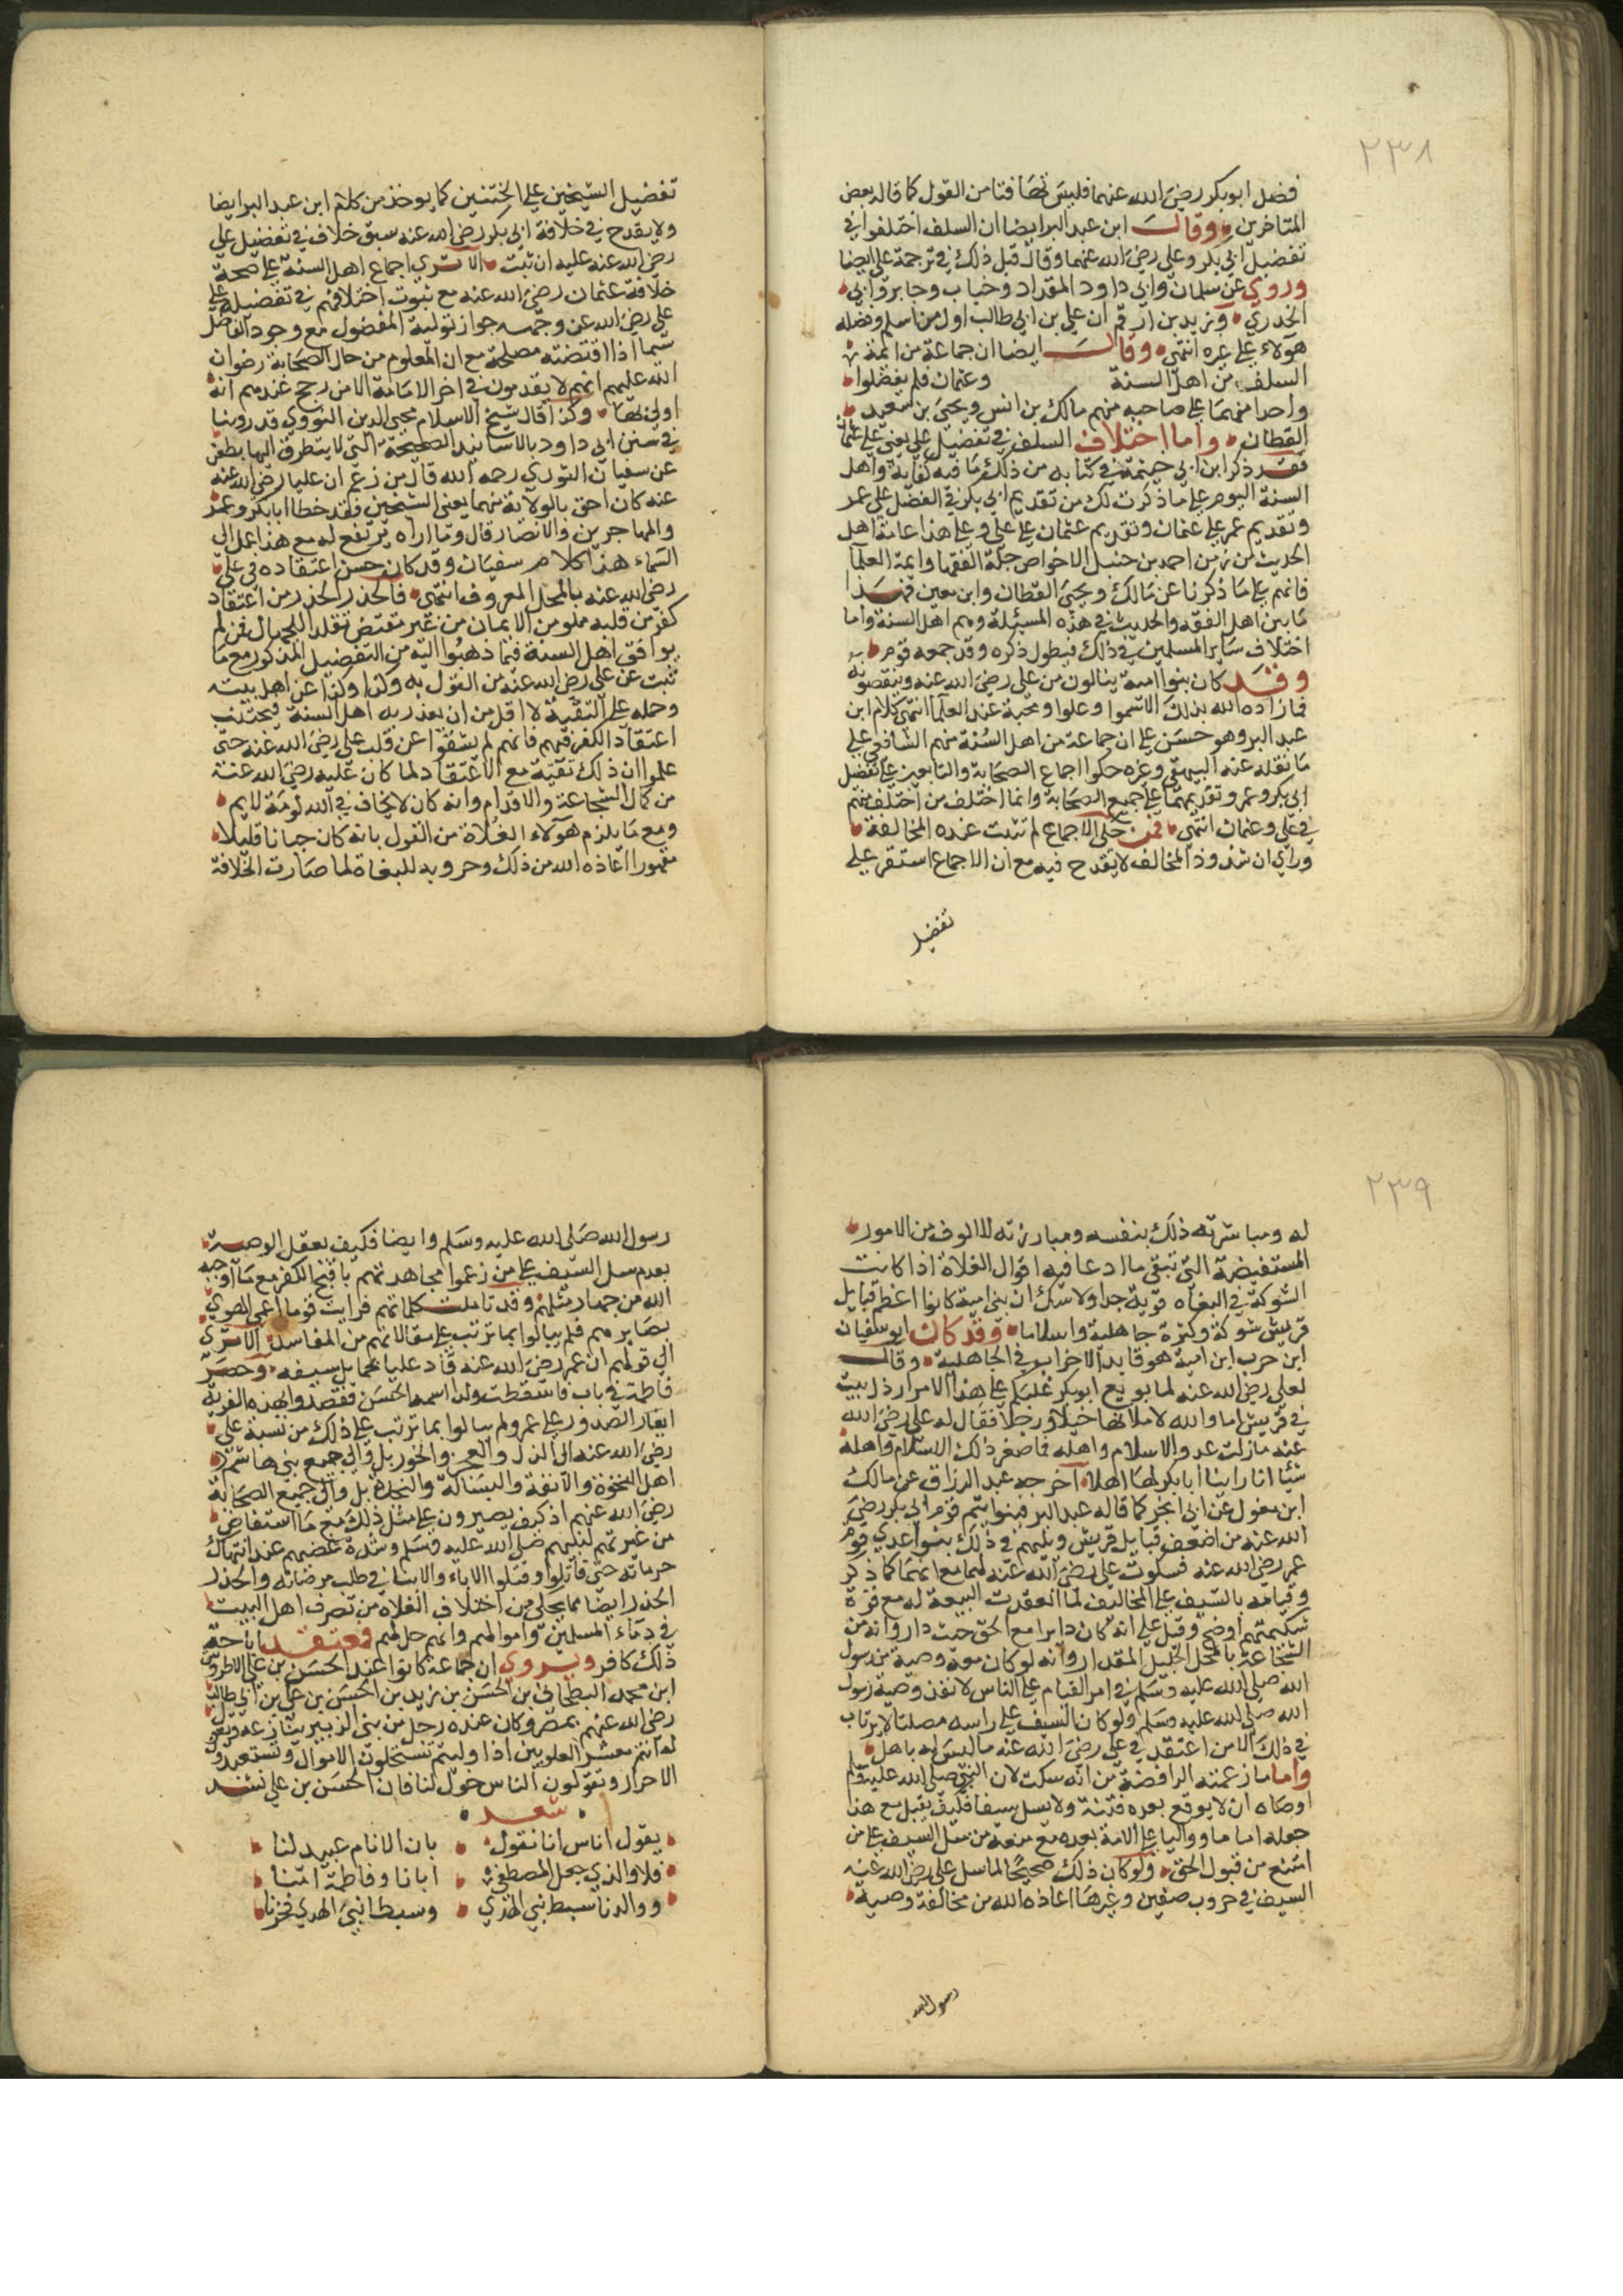 ٢٣٨
فضل ابو بكر رضي الله عنهما فليس نصا فتا من القول كما قاله بعض
المتاخرين وقال ابن عبد البر ايضا ان السلف اختلفوا في
تفضيل ابي بكر وعلي رضي الله عنهما وقال قبل ذلك في ترجمة علي ايضا
وروي عن سلمان وابي داود المقداد وخباب وجابر وابي
الخدري وزيد بن ارقم ان علي بن ابي طالب اول من اسلم وفضله
هولاء علي غيره انتهي وقال ايضا ان جماعة من ائمة
السلف من اهل السنة وعثمان فلم يفضلوا
واحدا منهما علي صاحبه منهم مالك بن انس ويحيي بن سعيد
القطان واما اختلاف السلف في تفضيل علي يعني علي عثمان
فقد ذكر ابن ابي خيثمة في كتابه من ذلك ما فيه كفاية واهل
السنة اليوم علي ما ذكرت لك من تقديم ابي بكر في الفضل علي عمر
وتقديم عمر علي عثمان وتقديم عثمان علي علي وعلي هذا عامة اهل
الحديث من زمن احمد بن حنبل الا خواص جلة الفقها وائمة العلما
فانهم علي ما ذكرنا عن مالك ويحيي القطان وابن معين فهذا
ما بين اهل الفقه والحديث في هذه المسئلة وهم اهل السنة واما
اختلاف ساير المسلمين في ذلك فيطول ذكره وقد جمعه قوم
وقد كان بنوا امية ينالون من علي رضي الله عنه وينقصونه
فما زاده الله بذلك الا سموا وعلوا ومحبة عند العلما انتهي كلام ابن
عبد البر وهو حسن علي ان جماعة من اهل السنة منهم الشافعي علي
ما نقله عنه البيهقي وغيره حكوا اجماع الصحابة والتابعين علي تفضيل
ابي بكر وعمر وتقديمهما علي جميع الصحابة وانما اختلف من اختلف منهم
في علي وعثمان انتهي فمن حكي الاجماع لم تثبت عنده المخالفة
وراي ان شذوذ المخالف لا يقدح فيه مع ان الاجماع استقر علي
تفضيل
تفضيل الشيخين علي الختنين كما يوخذ من كلام ابن عبد البر ايضا
ولا يقدح في خلافة ابي بكر رضي الله عنه سبق خلاف في تفضيل علي
رضي الله عنه عليه ان ثبت الا تري اجماع اهل السنة علي صحة
خلافة عثمان رضي الله عنه مع ثبوت اختلافهم في تفضيله علي
علي رضي الله عن وجهه جواز تولية المفضول مع وجود الفاضل
سيما اذا اقتضته مصلحة مع ان المعلوم من حال الصحابة رضوان
الله عليهم انهم لا يقدمون في امر الامامة الا من رجح عندهم انه
اولي بها وكذا قال شيخ الاسلام محيي الدين النووي قد روينا
في سنن ابي داود بالاسانيد الصحيحة التي لا يتطرق اليها بطعن
عن سفيان الثوري رحمه الله قال من زعم ان عليا رضي الله عنه
عنه كان احق بالولاية منهما يعني الشيخين فقد خطا ابا بكر وعمر
والمهاجرين والانصار قال وما اراه يرتفع له مع هذا عمل الي
السماء هذا كلام سفيان وقد كان حسن اعتقاده في علي
رضي الله عنه بالمحل المعروف انتهي فالحذر الحذر من اعتقاد
كفر من قلبه مملو من الايمان من غير مقتض تقليدا للجهال فمن لم
يوافق اهل السنة فيما ذهبوا اليه من التفضيل المذكور مع ما
ثبت عن علي رضي الله عنه من القول به وكذا وكذا عن اهل بيته
وحمله علي التقية لا اقل من ان يعذر به اهل السنة ويجتنب
اعتقاد الكفر فيهم فانهم لم يشقوا عن قلب علي رضي الله عنه حتي
علموا ان ذلك تقية مع الاعتقاد لما كان عليه رضي الله عنه
من كمال الشجاعة والاقدام وانه كان لا يخاف في الله لومة لايم
ومع ما يلزم هولاء الغلاة من القول بانه كان جبانا قليلا
مقهورا اعاذه الله من ذلك وحروبه للبغاة لما صارت الخلافة
٢٣٩
له ومباشرته ذلك بنفسه ومبارزته للالوف من الامور
المستفيضة التي تبقي ما ادعا فيه اقوال الغلاة اذا كانت
الشوكة في البغاه قوية جدا ولا شك ان بني امية كانوا اعظم قبايل
قريش شوكة وكثرة جاهلية واسلاما وقد كان ابو سفيان
ابن حرب ابن امية هو قايد الاحزاب وفي الجاهلية وقال
لعلي رضي الله عنه لما بويع ابو بكر غلبكم علي هذا الامر ارذل بيت
في قريش اما والله لاملانها خيلا ورجلا فقال له علي رضي الله
عنه ما زلت عدو الاسلام واهله فما ضر ذلك الاسلام واهله
شيئا انا راينا ابا بكر لها اهلا اخرجه عبد الرزاق عن مالك
ابن مغول عن ابي ابجر كما قاله عبد البر فبنوا تيم قوم ابي بكر رضي
الله عنه من اضعف قبايل قريش ويليهم في ذلك بنوا عدي قوم
عمر رضي الله عنه فسكوت علي رضي الله عنه لهما مع انهما كما ذكر
وقيامه بالسيف علي المخاليف لما انعقدت البيعة له مع قوة
شكيمتهم اوضح وقيل علي انه كان دايرا مع الحق حيث دار وانه من
الشجاعة بالمحل الجليل المقدار وانه لو كان معه وصية من رسول
الله صلي الله عليه وسلم في امر القيام علي الناس لانفذ وصية رسول
الله صلي الله عليه وسلم ولو كان السيف علي راسه مصلتا لا يرتاب
في ذلك الا من اعتقد في علي رضي الله عنه ما ليس له باهل
واما ما زعمته الرافضة من انه سكت لان النبي صلي الله عليه وسلم
اوصاه ان لا يوقع بعده فتنة ولا يسل سيفا فكيف يقبل مع هذا
جعله اماما وواليا علي الامة بعده مع منعه من سل السيف علي من
امتنع من قبول الحق ولو كان ذلك صحيحا لما سل علي رضي الله عنه
السيف في حروب صفين وغيرها اعاذه الله من مخالفة وصية
رسول الله
رسول الله صلي الله عليه وسلم وايضا فكيف يعقل الوصية
بعدم سل السيف علي من زعموا مجاهدتهم باقبح الكفر مع ما اوجبه
الله من جهاد مثلهم وقد تاملت كلماتهم فرايت قوما اعمي الهوي
بصايرهم فلم يبالوا بما ترتب علي مقالاتهم من المفاسد الا تري
الي قولهم ان عمر رضي الله عنه قاد عليا بحمايل سيفه وحصر
فاطمة في باب فاسقطت ولدا اسمه المحسن فقصدوا بهذه الفرية
ايغار الصدور علي عمر ولم يبالوا بما ترتب علي ذلك من نسبة علي
رضي الله عنه الي الذل والعجز والخور بل والي جميع بني هاشم
اهل النخوة والانفة والبسالة والنجدة بل والي جميع الصحابة
رضي الله عنهم اذ كيف يصبرون علي مثل ذلك مع ما استفاض
من غيرتهم لنبيهم صلي الله عليه وسلم وشدة غضبهم عند انتهاك
حرماته حتي قاتلوا وقتلوا الاباء والابنا في طلب مرضاته والحذر
الحذر ايضا مما يحكي من اختلاف الغلاه من تصرف اهل البيت
في دماء المسلمين واموالهم وانهم حل لهم فمعتقد اباحة
ذلك كافر ويروي ان جماعة كانوا عند الحسن بن علي الاطروش
ابن محمد البطحاني بن الحسن بن زيد بن الحسن بن علي بن ابي طالب
رضي الله عنهم بمصر وكان عنده رجل من بني الزبير ينازعه ويقول
له انتم معشر العلويين اذا وليتم تستحلون الاموال وتستعبدون
الاحرار وتقولون الناس خول لنا فان الحسن بن علي نشد
شعد
يقول اناس انا نقول بان الانام عبيد لنا
فلا والذي جعل المصطفي ابانا وفاطمة امنا
ووالدنا سبط نبي الهدي وسبطا نبي الهدي فخرنا